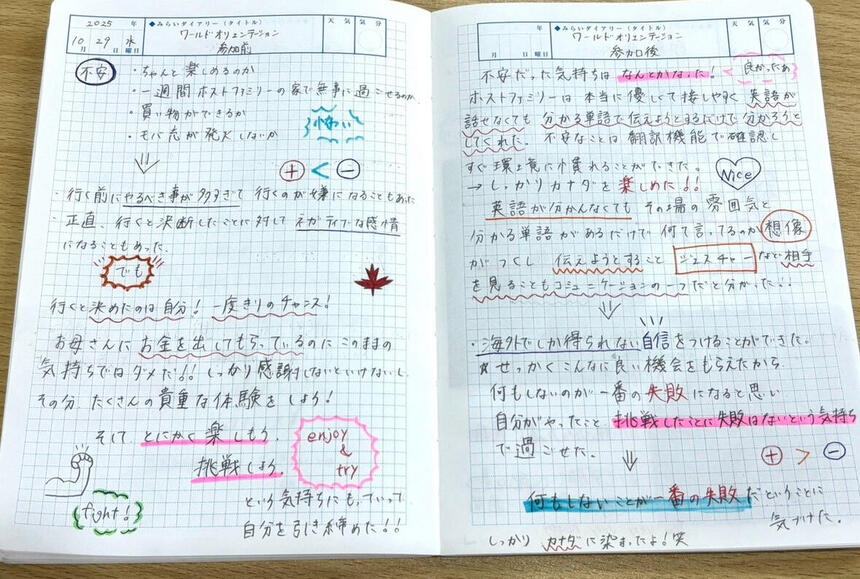 2025 年
10月 29日 水曜日
◆みらいダイアリー(タイトル)
ワールドオリエンテーション
参加前
天気
気分
不安
・ちゃんと楽しめるのか
・一週間ホストファミリーの家で無事に過ごせるのか
・買い物ができるか
・モバ充が発火しないか
怖い
⊕ < ⊖
・行く前にやるべき事が多すぎて 行くのが嫌になることもあった
・正直、行くと決断したことに対して ネガティブな感情
になることもあった。
でも
行くと決めたのは自分! 一度きりのチャンス!
お母さんにお金を出してもらっているのにこのままの
気持ちではダメだ!! しっかり感謝しないといけないし
その分 たくさんの貴重な体験をしよう!
そして とにかく楽しもう
挑戦しよう
enjoy
&
try
fight!
という気持ちにもっていって
自分を引き締めた!!
年
月 日 曜日
◆みらいダイアリー(タイトル)
ワールドオリエンテーション
参加後
天気
気分
不安だった気持ちは なんとかなった!
良かったぁ
ホストファミリーは本当に優しくて接しやすく 英語が
話せなくても 分かる単語で伝えようとするだけで分かろうと
してくれた。不安なことは翻訳機能で確認し
すぐ環境に慣れることができた。
Nice
→しっかりカナダを楽しめた!!
英語が分かんなくても その場の雰囲気と
分かる単語があるだけで 何て言ってるのか 想像
がつくし 伝えようとすること ジェスチャーなど 相手
を見ることもコミュニケーションの一つだと分かった!!
・海外でしか得られない自信をつけることができた。
★せっかくこんなに良い機会をもらえたから
何もしないのが一番の失敗になると思い
自分がやったこと 挑戦したことに失敗はないという気持ち
で過ごせた。
⊕ > ⊖
何もしないことが一番の失敗だということに
気づけた。
しっかり カナダに染まったよ!笑